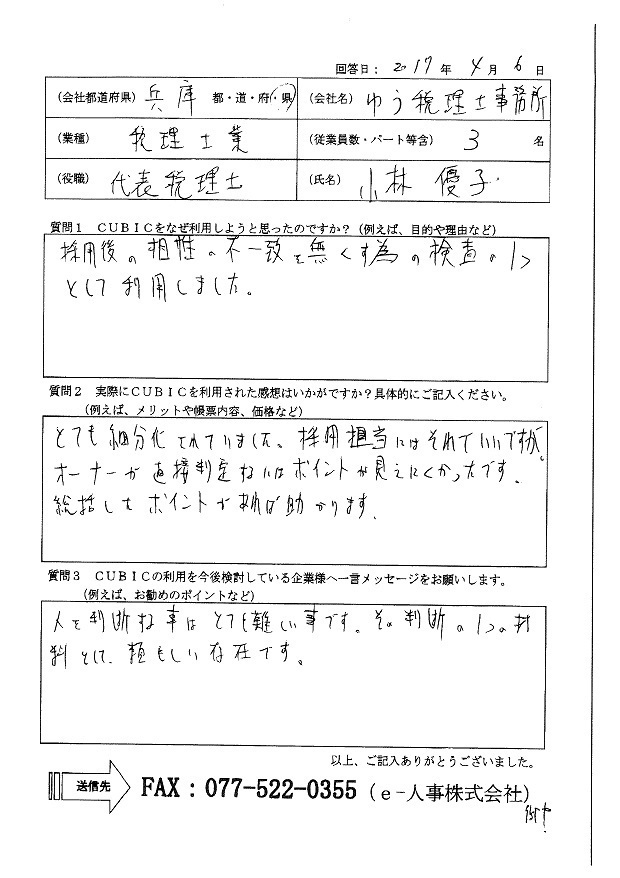 回答日： 2017 年 4 月 6 日
（会社都道府県） 兵庫 都・道・府・県 （会社名） ゆう税理士事務所
（業種） 税理士業 （従業員数・パート等含） 3 名
（役職） 代表税理士 （氏名） 小林 優子
質問１ ＣＵＢＩＣをなぜ利用しようと思ったのですか？（例えば、目的や理由など）
採用後の相性の不一致を無くす為の検査の1つ
として利用しました。
質問２ 実際にＣＵＢＩＣを利用された感想はいかがですか？具体的にご記入ください。
（例えば、メリットや帳票内容、価格など）
とても細分化されていました。採用担当にはそれでいいですが、
オーナーが直接判定するにはポイントが見えにくかったです。
総括したポイントがあれば助かります。
質問３ ＣＵＢＩＣの利用を今後検討している企業様へ一言メッセージをお願いします。
（例えば、お勧めのポイントなど）
人を判断する事はとても難しい事です。その判断の1つの材
料として、頼もしい存在です。
以上、ご記入ありがとうございました。
送信先 FAX：077-522-0355（ｅ-人事株式会社）